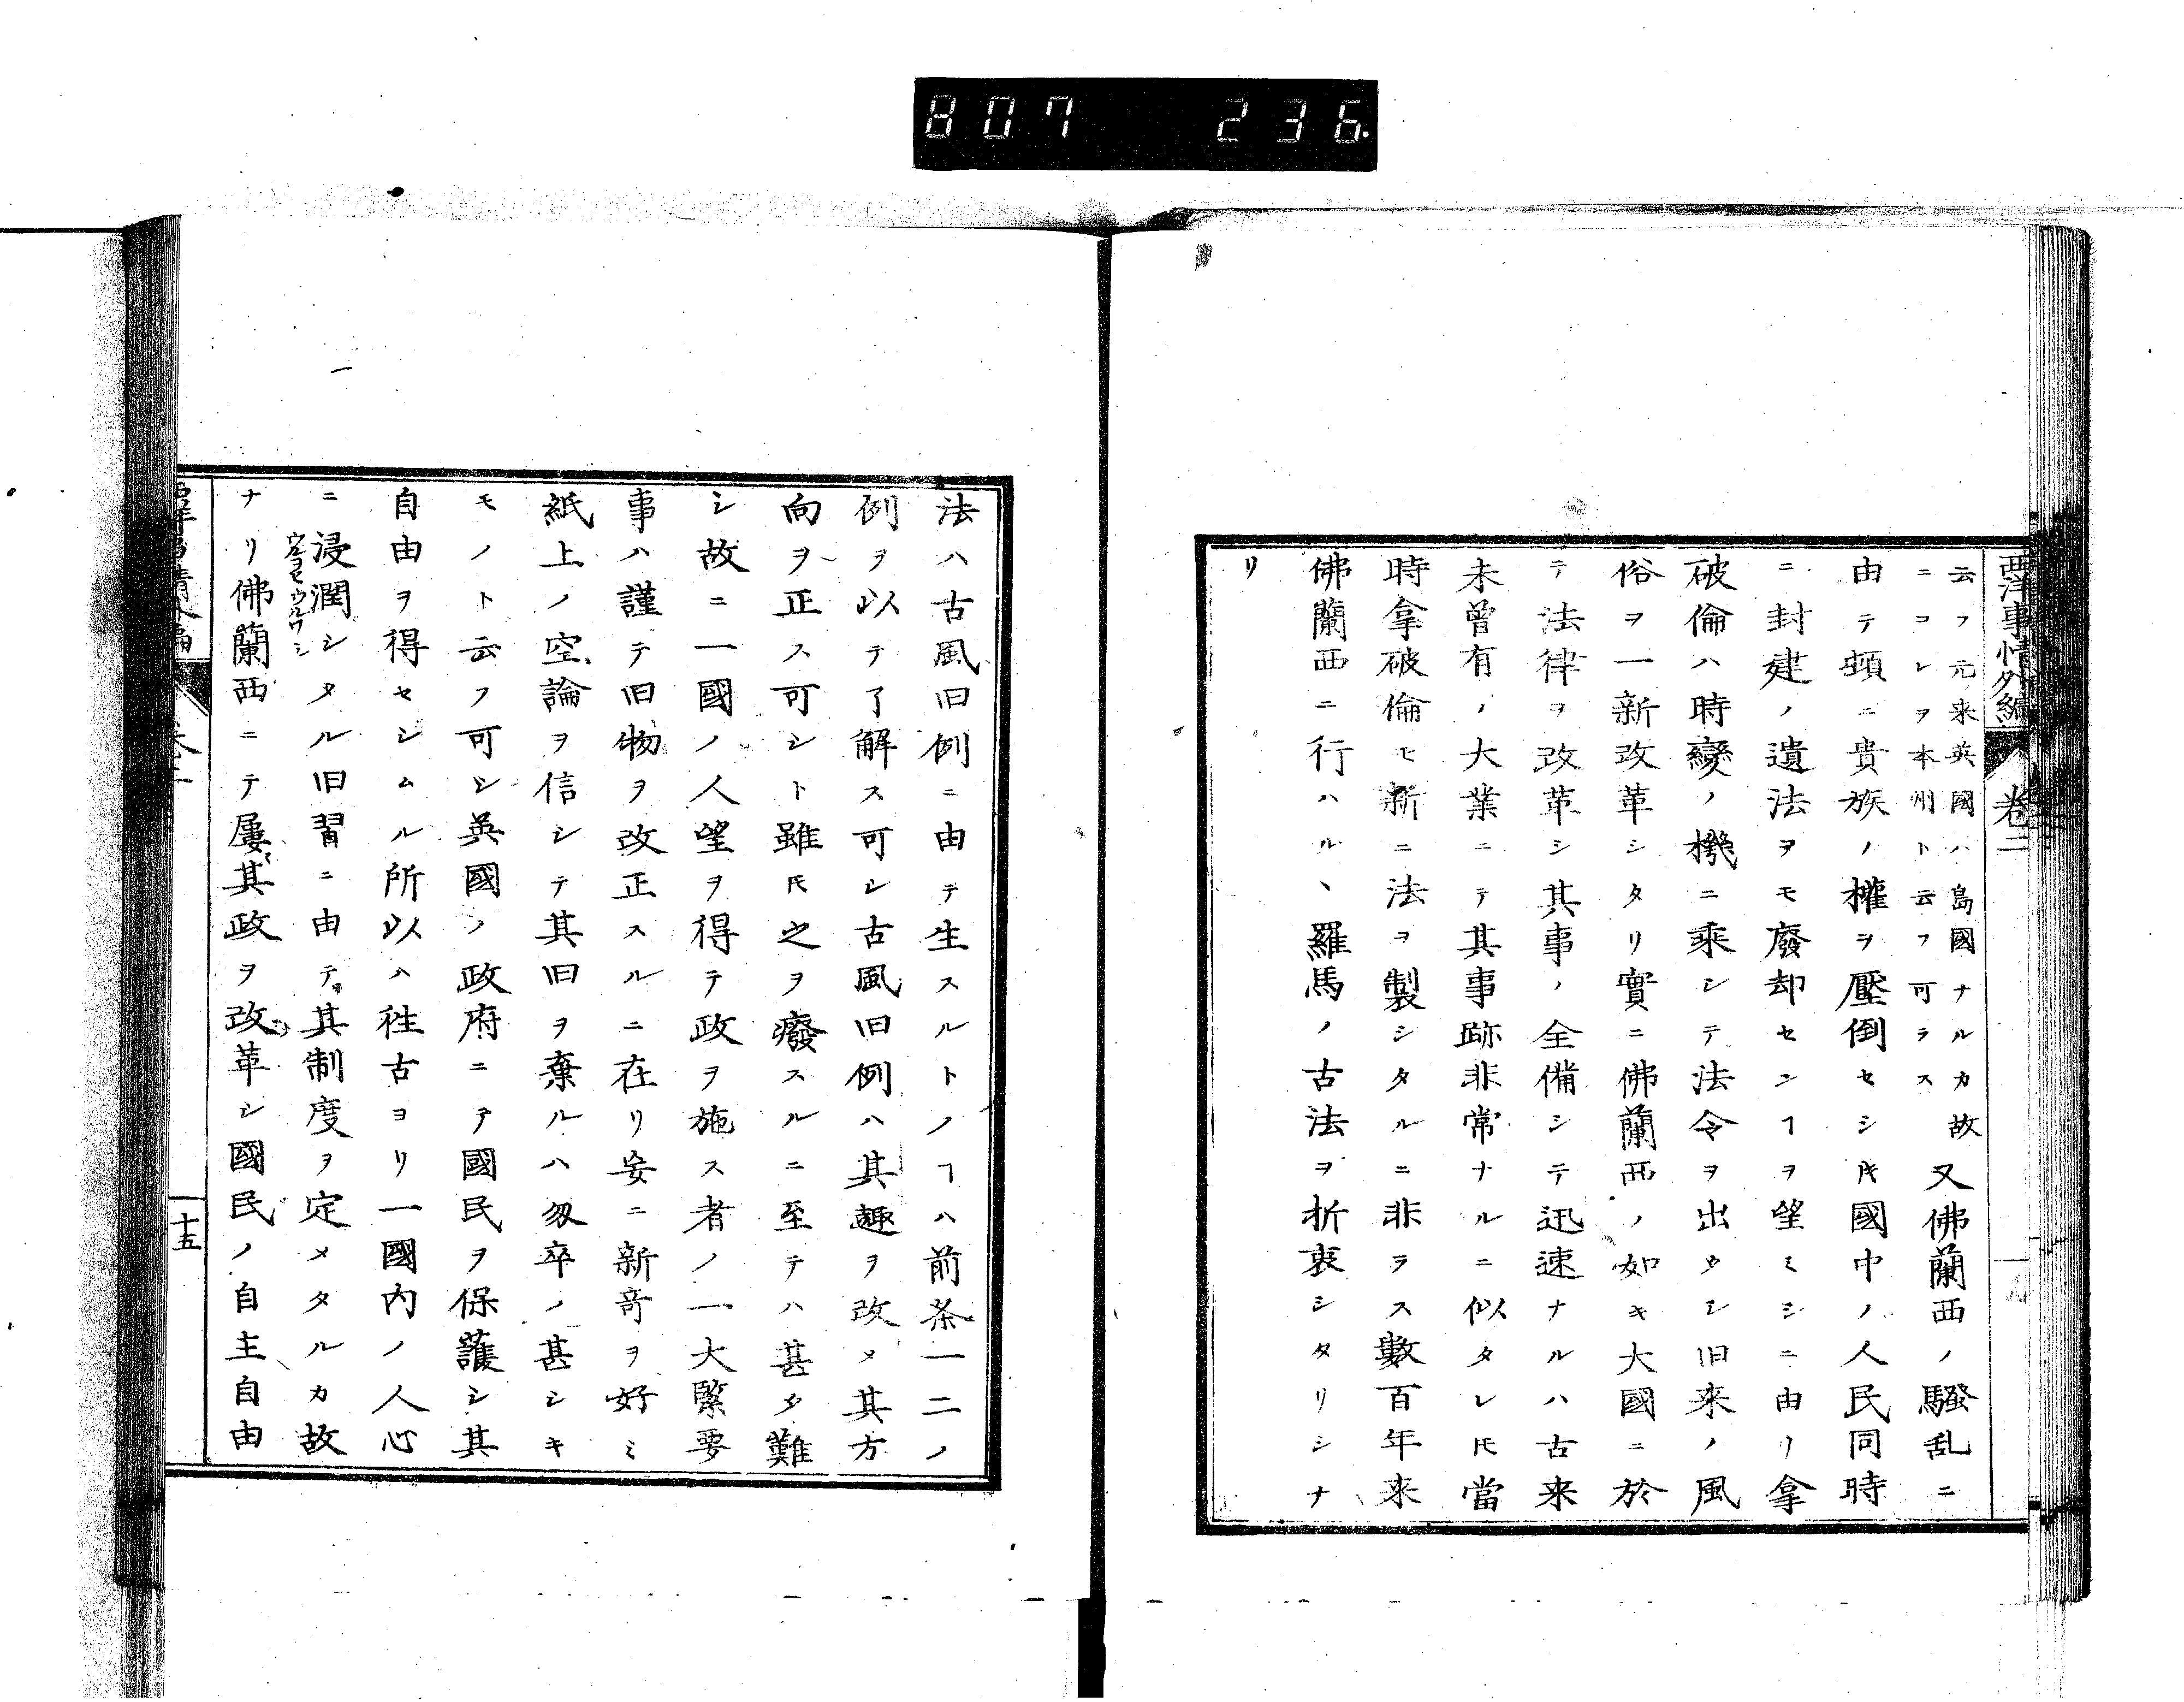 807 236.
西洋事情外編 卷二
云フ元来英國ハ島國ナルカ故
ニコレヲ本州ト云フ可ラス
又佛蘭西ノ騷乱ニ
由テ頓ニ貴族ノ權ヲ壓倒セシ𪜈國中ノ人民同時
ニ封建ノ遺法ヲモ廢却センヿヲ望ミシニ由リ拿
破倫ハ時變ノ機ニ乘シテ法令ヲ出タシ旧来ノ風
俗ヲ一新改革シタリ實ニ佛蘭西ノ如キ大國ニ於
テ法律ヲ改革シ其事ノ全備シテ迅速ナルハ古来
未曾有ノ大業ニテ其事跡非常ナルニ似タレ𪜈當
時拿破倫モ新ニ法ヲ製シタルニ非ラス數百年来
佛蘭西ニ行ハルヽ羅馬ノ古法ヲ折衷シタリシナ
リ
法ハ古風旧例ニ由テ生スルトノヿハ前条一二ノ
例ヲ以テ了解ス可シ古風旧例ハ其趣ヲ改メ其方
向ヲ正ス可シト雖𪜈之ヲ癈スルニ至テハ甚タ難
シ故ニ一國ノ人望ヲ得テ政ヲ施ス者ノ一大緊要
事ハ謹テ旧物ヲ改正スルニ在リ妄ニ新奇ヲ好ミ
紙上ノ空論ヲ信シテ其旧ヲ棄ルハ匆卒ノ甚シキ
モノト云フ可シ英國ノ政府ニテ國民ヲ保護シ其
自由ヲ得セシムル所以ハ徃古ヨリ一國内ノ人心
ニ浸潤シタル旧習ニ由テ其制度ヲ定メタルカ故
ナリ佛蘭西ニテ屢其政ヲ改革シ國民ノ自主自由
十五